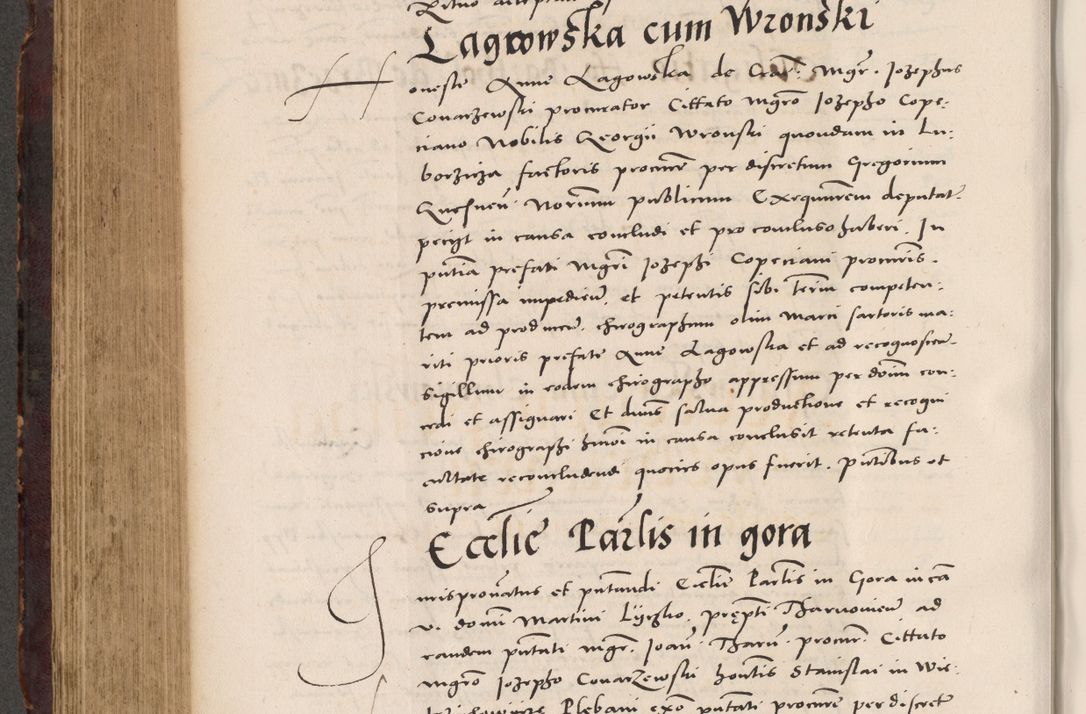 Lagrowska cum Wronski
Honeste Anne Lagowska de Crac: Mgr. Jozephus
Conarzewski procurator Cittato Mgro Jozepho Cope-
ciano Nobilis Georgii Wronski quondam in Lu-
borzicza factoris procure per discretum Gregorium
publicum Exequutorem deputat
petiit in causa concludi et pro concluso haberi. In
pntia prefati Mgri Jozephi Copeciani procuris.
premissa impedien. et petentis sibi Termin competen-
tem ad producen. chirographum olim Marci sartoris ma-
riti prioris prefate Anne Lagowska et ad recognoscen-
sigillum in eodem chirographo appressum per domin con-
cedi et assignari Et dnus salua productione et recogni
cione chirographi hmoi in causa conclusit retenta fa-
cultate reconcludendi quocies opus fuerit. pntibus ut
supra
Ecclie Parlis in gora
Jurispronatus et pntandi Ecclie Parlis in Gora in ca
v. domi Martini prepti Tharnouien ad
eandem pntati Mgr. Joan Tharn. procur. Cittato
Mgro Jozepho Conarzewski hontis Stanislai in Wie-
Plebani exo pntati procure per discret